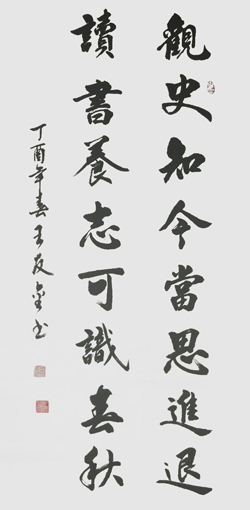 觀史知今當思進退
讀書養志可識春秋
丁酉年春王友金书